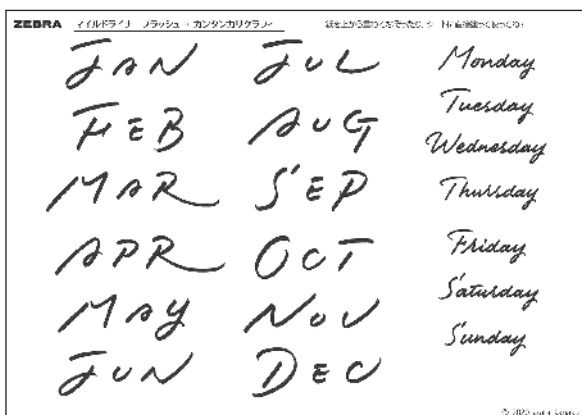 ZEBRA マイルドライナーブラッシュ × カンタンカリグラフィー
JAN
FEB
MAR
APR
MAY
JUN
JUL
AUG
SEP
OCT
NOV
DEC
Monday
Tuesday
Wednesday
Thursday
Friday
Saturday
Sunday